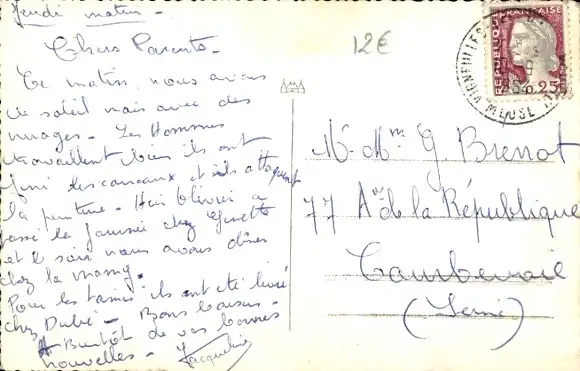 Jeudi matin -
Chers Parents -
Ce matin, nous avions
le soleil mais avec des
nuages - Les Hommes
travaillent bien ils ont
fini les caneaux et ils attaquent
la peinture - Hier Olivier a
passé la journée chez Ginette
et le soir nous avons dîner
chez la mamy -
Pour les tamis ils ont été livré
chez Dubé - Bons baisers -
A Bientôt de vos bonnes
nouvelles - Jacqueline
12€
REPUBLIQUE FRANÇAISE
0,25
VIGNEULLES
MEUSE
Mr Mme G. Brenot
77 Ave de la République
Courbevoie
(Seine)